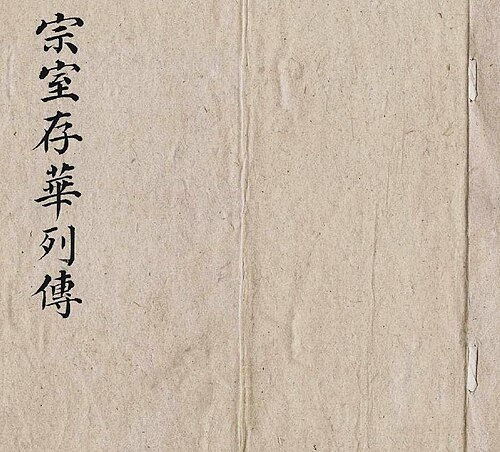 宗室存華列傳